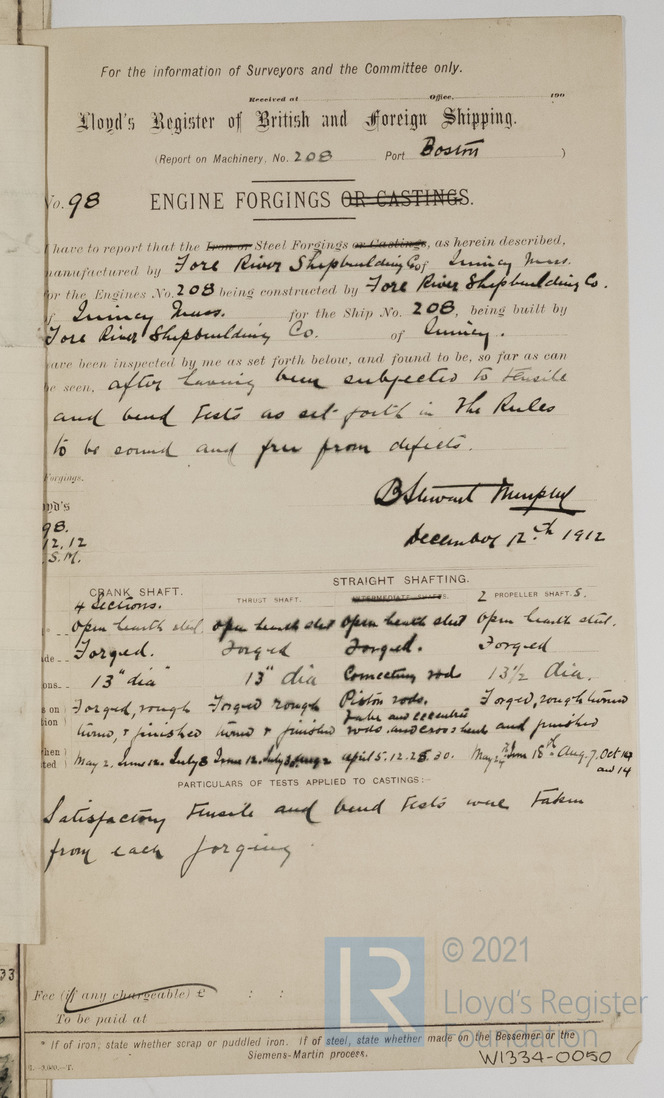 For the information of Surveyors and the Committee only.
Received at Office, 190
Lloyd's Register of British and Foreign Shipping.
(Report on Machinery, No. 208 Port Boston )
No. 98 ENGINE FORGINGS OR CASTINGS.
I have to report that the Iron or Steel Forgings or Castings, as herein described,
manufactured by Fore River Shipbuilding Co of Quincy Mass.
for the Engines No. 208 being constructed by Fore River Shipbuilding Co.
of Quincy Mass. for the Ship No. 208, being built by
Fore River Shipbuilding Co. of Quincy.
have been inspected by me as set forth below, and found to be, so far as can
be seen, after having been subjected to tensile
and bend tests as set forth in the Rules
to be sound and free from defects.
Forgings.
yd's
98.
12.12
S.M.
B Stewart Murphy
December 12th 1912
STRAIGHT SHAFTING.
CRANK SHAFT. THRUST SHAFT. INTERMEDIATE SHAFTS. 2 PROPELLER SHAFT.S.
4 Sections.
Open hearth steel, open hearth steel open hearth steel open hearth steel.
Forged. Forged Forged. Forged
13" dia 13" dia Connecting rods 13½ dia.
Forged, rough Forged rough Piston rods. Forged, rough turned
turned, & finished turned & finished rods and crossheads and finished
May 2, June 12. July 8 June 12. July 30. Aug 2 April 5. 12. 25. 30. May 24th June 18th Aug. 7. Oct 10
and 14
PARTICULARS OF TESTS APPLIED TO CASTINGS:-
Satisfactory tensile and bend tests were taken
from each forging
33
Fee (if any chargeable) £ : :
To be paid at
* If of iron, state whether scrap or puddled iron. If of steel, state whether made on the Bessemer or the
Siemens-Martin process.
W1334-0050
LR
© 2021
Lloyd's Register
Foundation